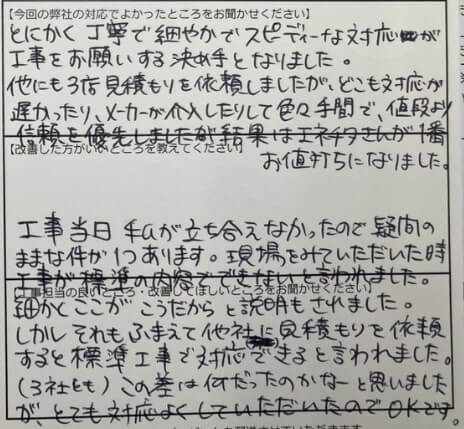 【今回の弊社の対応でよかったところをお聞かせください】
とにかく丁寧で細やかでスピーディーな対応が
工事をお願いする決め手となりました。
他にも3店見積もりを依頼しましたが、どこも対応が
遅かったり、メーカーが介入したりして色々手間で、値段より
信頼を優先しましたが結果はエネチタさんが1番
【改善した方がいいところを教えてください】
お値打ちになりました。
工事当日 私が立ち会えなかったので疑問の
ままな件が1つあります。現場をみていただいた時
工事が標準の内容でできないと言われました。
【工事担当の良いところ・改善してほしいところをお聞かせください】
細かくここがこうだからと説明もされました。
しかしそれもふまえて他社に見積もりを依頼
すると標準工事で対応できると言われました。
(3社とも)この差は何だったのかなーと思いました
が、とても対応よくしていただいたのでOKです。